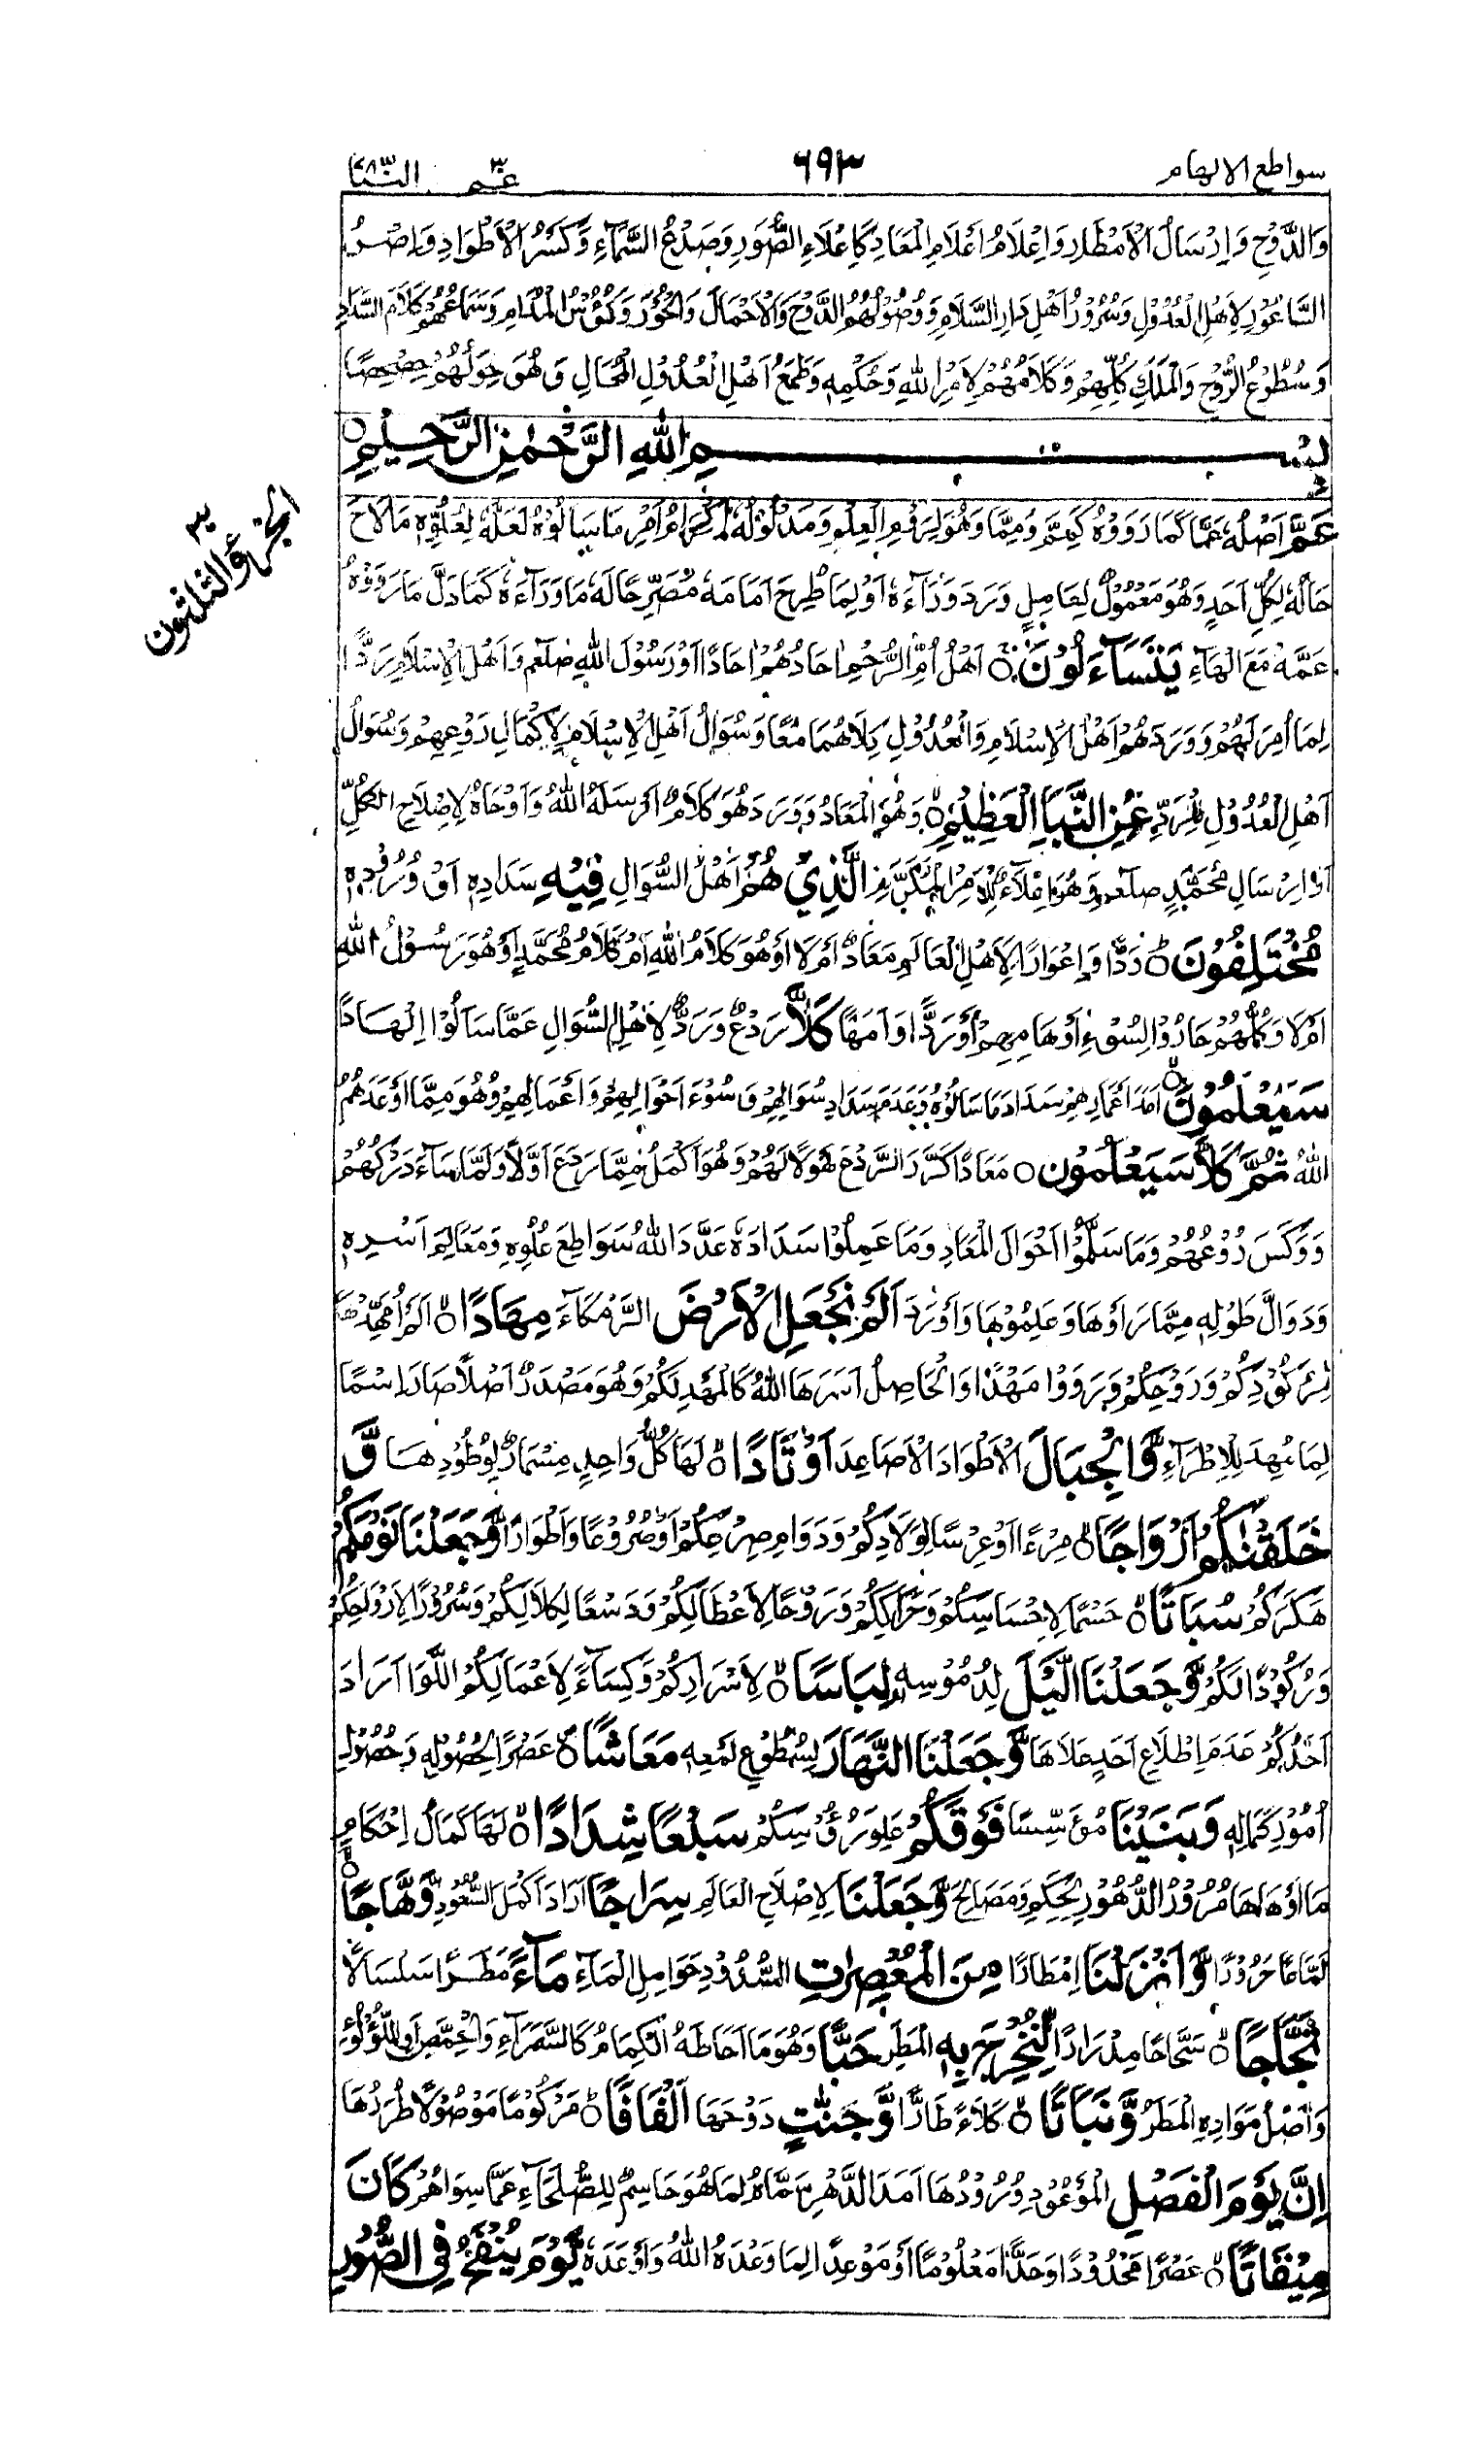 سواطع الالهام ٦٩٣ عم ٣٠ النبا ٧٨
وَالدَّوْحِ وَاِرْسَالُ الْاَمْطَارِ وَاِعْلَامُ اَعْلَامِ الْمَعَادِ كَاِعْلَاءِ الصُّوَرِ وَصَدْعُ السَّمَآءِ وَكَسْرُ الْاَطْوَادِ وَاِصْرُ
السَّاعُوْرِ لِاَهْلِ الْعُدُوْلِ وَسُرُوْرُ اَهْلِ دَارِ السَّلَامِ وَوُصُوْلُهُمُ الدَّوْحَ وَالْاَحْمَالَ وَالْحُوْرَ وَكُؤُسَ الْمُدَامِ وَسَمَاعُهُمْ كَلَامَ السَّدَادِ
وَسُطُوْعُ الرُّوْحِ وَالْمَلَكِ كُلِّهِمْ وَكَلَامُهُمْ لِاَمْرِ اللّٰهِ وَحُكْمِهٖ وَطَمَعُ اَهْلِ الْعُدُوْلِ الْمُحَالِ وَهُوَ حِوَلُهُمْ حِصْحِصًا
بِسْمِ اللّٰهِ الرَّحْمٰنِ الرَّحِيْمِ
عَمَّ اَصْلُهٗ عَمَّا كَمَا رَوَوْهُ كَمِمَّ وَمِمَّا وَهُوَ لِمَ وَفِمَ الْعِلْمِ وَمَدْلُوْلُهٗ اِكْرَامُ اَمْرِ مَا سَاَلُوْهُ لَعَلَّهٗ لِعُلُوِّهٖ مَا لَاحَ
حَالُهٗ لِكُلِّ اَحَدٍ وَهُوَ مَعْمُوْلٌ لِعَامِلٍ وَرَدَ وَرَآءَهٗ اَوْ لِمَا طُرِحَ اَمَامَهٗ مُصَرِّحَالَهٗ مَا وَرَآءَهٗ كَمَا دَلَّ مَا رَوَوْهُ
عَمَّهْ مَعَ الْهَآءِ يَتَسَآءَلُوْنَ اَهْلُ اُمِّ الرُّحْمِ اٰحَادُهُمْ اٰحَادًا اَوْ رَسُوْلَ اللّٰهِ صلعم وَاَهْلَ الْاِسْلَامِ رَدًّا
لِمَا اُمِرَ لَهُمْ وَوَرَدَ هُمْ اَهْلُ الْاِسْلَامِ وَالْعُدُوْلِ كِلَاهُمَا مَعًا وَسُوَالُ اَهْلِ الْاِسْلَامِ لِاِكْمَالِ رَوْعِهِمْ وَسُوَالُ
اَهْلِ الْعُدُوْلِ لِلرَّدِّ عَنِ النَّبَاِ الْعَظِيْمِ وَهُوَ الْمَعَادُ وَوَرَدَ هُوَ كَلَامٌ اَرْسَلَهُ اللّٰهُ وَاَوْحَاهُ لِاِصْلَاحِ الْكُلِّ
اَوْ اِرْسَالِ مُحَمَّدٍ صلعم وَهُوَ اِمْلَآءٌ لِلْاَمْرِ الْمُكَرَّمِ الَّذِيْ هُمْ اَهْلُ السُّوَالِ فِيْهِ سَدَادِهٖ اَوْ وُرُوْدِهٖ
مُخْتَلِفُوْنَ رَدًّا وَاِعْوَارًا لِاَهْلِ الْعَالَمِ مَعَادٌ اَمْ لَا اَوْ هُوَ كَلَامُ اللّٰهِ اَمْ كَلَامُ مُحَمَّدٍ اَوْ هُوَ رَسُوْلُ اللّٰهِ
اَمْ لَا وَكُلُّهُمْ حَارُوْا لِسُوْءِ اَوْهَامِهِمْ اَوْ رَدًّا وَاَمَهًا كَلَّا رَدْعٌ وَرَدٌّ لِاَهْلِ السُّوَالِ عَمَّا سَاَلُوْا اِلْهَادًا
سَيَعْلَمُوْنَ اَمَدَ اَعْمَارِهِمْ سَدَادَ مَا سَاَلُوْهُ وَعَدَمَ سَدَادِ سُوَالِهِمْ وَسُوْءَ اَحْوَالِهِمْ وَاَعْمَالِهِمْ وَهُوَ مِمَّا اَوْعَدَهُمُ
اللّٰهُ ثُمَّ كَلَّا سَيَعْلَمُوْنَ مَعَادًا كَرَّرَ الرَّدْعَ هَوْلًا لَهُمْ وَهُوَ اَكْمَلُ مِمَّا رَدَعَ اَوَّلًا وَلَمَّا سَآءَ دَرْكُهُمْ
وَوَكَسَ رُوْعُهُمْ وَمَا سَلَّمُوْا اَحْوَالَ الْمَعَادِ وَمَا عَمِلُوْا سَدَادَهٗ عَدَّدَ اللّٰهُ سَوَاطِعَ عُلُوِّهٖ وَمَعَالِمَ اَسْرِهٖ
وَدَوَالَّ طَوْلِهٖ مِمَّا رَاَوْهَا وَعَلِمُوْهَا وَاَوْرَدَ اَلَمْ نَجْعَلِ الْاَرْضَ الرَّمْكَآءَ مِهَادًا اَلَمْ اُمَهِّدْهَا
لِرُكُوْدِكُمْ وَرَوْحِكُمْ وَرَوَوْا مَهْدًا وَالْحَاصِلُ اَسَرَهَا اللّٰهُ كَالْمَهْدِ لَكُمْ وَهُوَ مَصْدَرٌ اَصْلًا صَارَ اِسْمًا
لِمَا مُهِدَ لِلْاِطْرَآءِ وَالْجِبَالَ الْاَطْوَادَ الْاَصَاعِدَ اَوْتَادًا لَهَا كُلُّ وَاحِدٍ مِسْمَارٌ لِوُطُوْدِهَا وَّ
خَلَقْنٰكُمْ اَزْوَاجًا مِرْءًا اَوْ عِرْسًا لِوِلَادِكُمْ وَدَوَامِ صِرْعِكُمْ اَوْ صُرُوْعًا وَاَطْوَارًا وَّجَعَلْنَا نَوْمَكُمْ
هَكَرَكُمْ سُبَاتًا حَسْمًا لِاِحْسَاسِكُمْ وَحَرَاكِكُمْ وَرَوْحًا لِاَعْطَالِكُمْ وَدَسْعًا لِكَلَالِكُمْ وَسُرُوْرًا لِاَرْوَاحِكُمْ
وَرُكُوْدًا لَكُمْ وَّجَعَلْنَا الَّيْلَ لِدُمُوْسِهٖ لِبَاسًا لِاَسْرَارِكُمْ وَكِسَآءً لِاَعْمَالِكُمُ اللَّوَا اَرَادَ
اَحَدُكُمْ عَدَمَ اِطْلَاعِ اَحَدٍ عَلَاهَا وَّجَعَلْنَا النَّهَارَ لِسُطُوْعِ لَمْعِهٖ مَعَاشًا عَصْرًا لِحُصُوْلِهٖ وَحُصُوْلِ
اُمُوْرِ كَمَالِهٖ وَبَنَيْنَا مُؤَسِّسًا فَوْقَكُمْ عِلْوَ رُؤُسِكُمْ سَبْعًا شِدَادًا لَهَا كَمَالُ اِحْكَامٍ
مَا اَوْهَاهَا مُرُوْرُ الدُّهُوْرِ لِحِكَمٍ وَمَصَالِحَ وَّجَعَلْنَا لِاِصْلَاحِ الْعَالَمِ سِرَاجًا اَرَادَ اَكْمَلَ السُّعُوْدِ وَّهَّاجًا
لَمَّاعًا حَرُوْرًا وَّاَنْزَلْنَا اِمْطَارًا مِنَ الْمُعْصِرٰتِ السُّدُوْدِ حَوَامِلِ الْمَآءِ مَآءً مَطَرًا سَلْسَالًا
ثَجَّاجًا سَحَّاحًا مِدْرَارًا لِّنُخْرِجَ بِهِ الْمَطَرِ حَبًّا وَهُوَ مَا اَحَاطَهُ الْكِمَامُ كَالسَّمْرَآءِ وَالْحِمَّصِ اَوِ اللُّؤْلُؤِ
وَاَصْلُ مَوَادِهِ الْمَطَرُ وَّنَبَاتًا كَلَاءً طَارًّا وَّجَنّٰتٍ دَوْحَهَا اَلْفَافًا مَرْكُوْمًا مَوْصُوْلًا طُرُدُهَا
اِنَّ يَوْمَ الْفَصْلِ الْمَوْعُوْدِ وُرُوْدُهَا اَمَدَ الدَّهْرِ سَمَّاهُ لِمَا هُوَ حَاسِمٌ لِلصُّلَحَآءِ عَمَّا سِوَاهُمْ كَانَ
مِيْقَاتًا عَصْرًا مَحْدُوْدًا وَحَدًّا مَعْلُوْمًا اَوْ مَوْعِدًا لِمَا وَعَدَهُ اللّٰهُ وَاَوْعَدَهٗ يَّوْمَ يُنْفَخُ فِي الصُّوْرِ
الجزء ٣٠ والثلثون